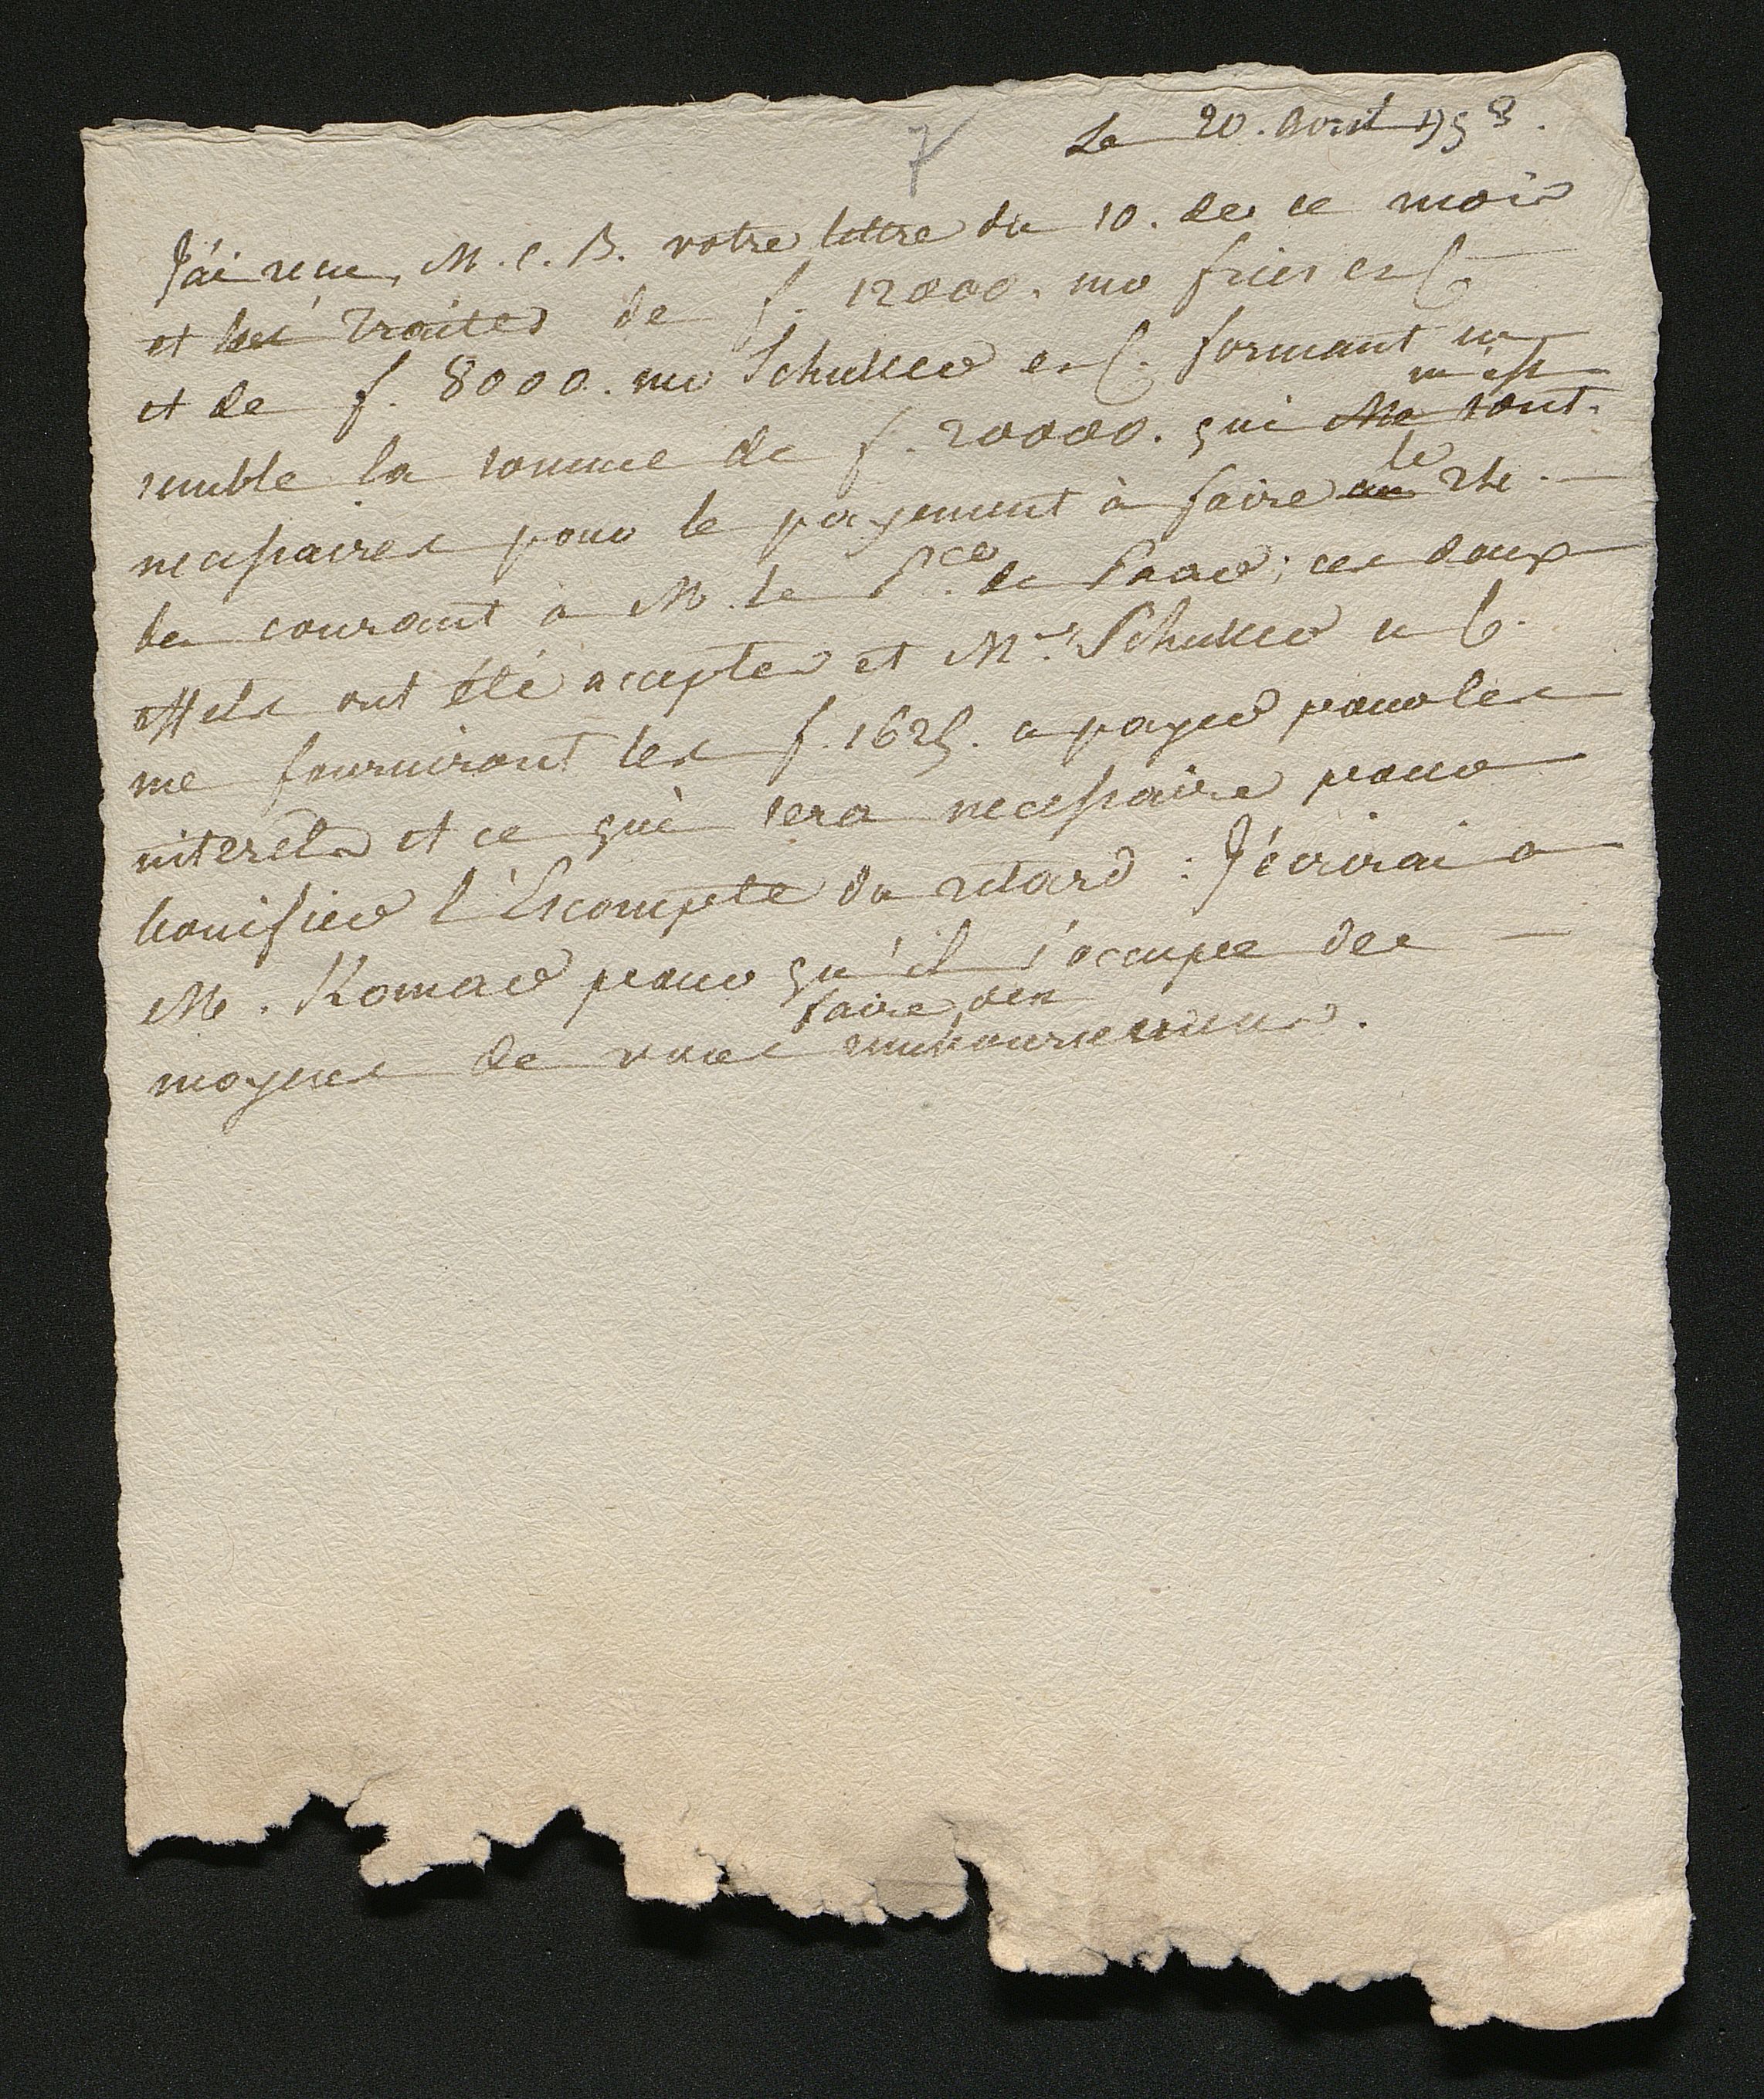 7
Le 20. Avril 1758.
J'ai recu, M. C. B. votre lettre du 10. de ce mois
et les Traites de f. 12000. sur fries et C
et de f. 8000. sur Schuller et C. formant en
semble la somme de f. 20000. qui me sont
m'est
necessaires pour le payement à faire au 24.
le
du courant à M. le P.ce de ces deux
effets ont été acceptes et M.rs Schuller et C.
me fourniront les f. 1625. a payer pour les
interets et ce qui sera necessaire pour
bonifier l'Escompte du retard: J'écrirai a
M. pour qu'il s'occupe des
moyens de vous remboursemens.
faire des